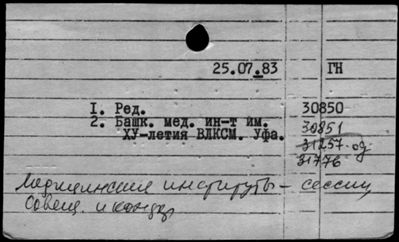 25.07.83 ГН
I. Ред. 30850
2. Башк. мед. ин-т им. 30851
ХУ-летия ВЛКСМ. Уфа. 31257 од
31776
Медицинские институты – сессии
Совещ. и конфер